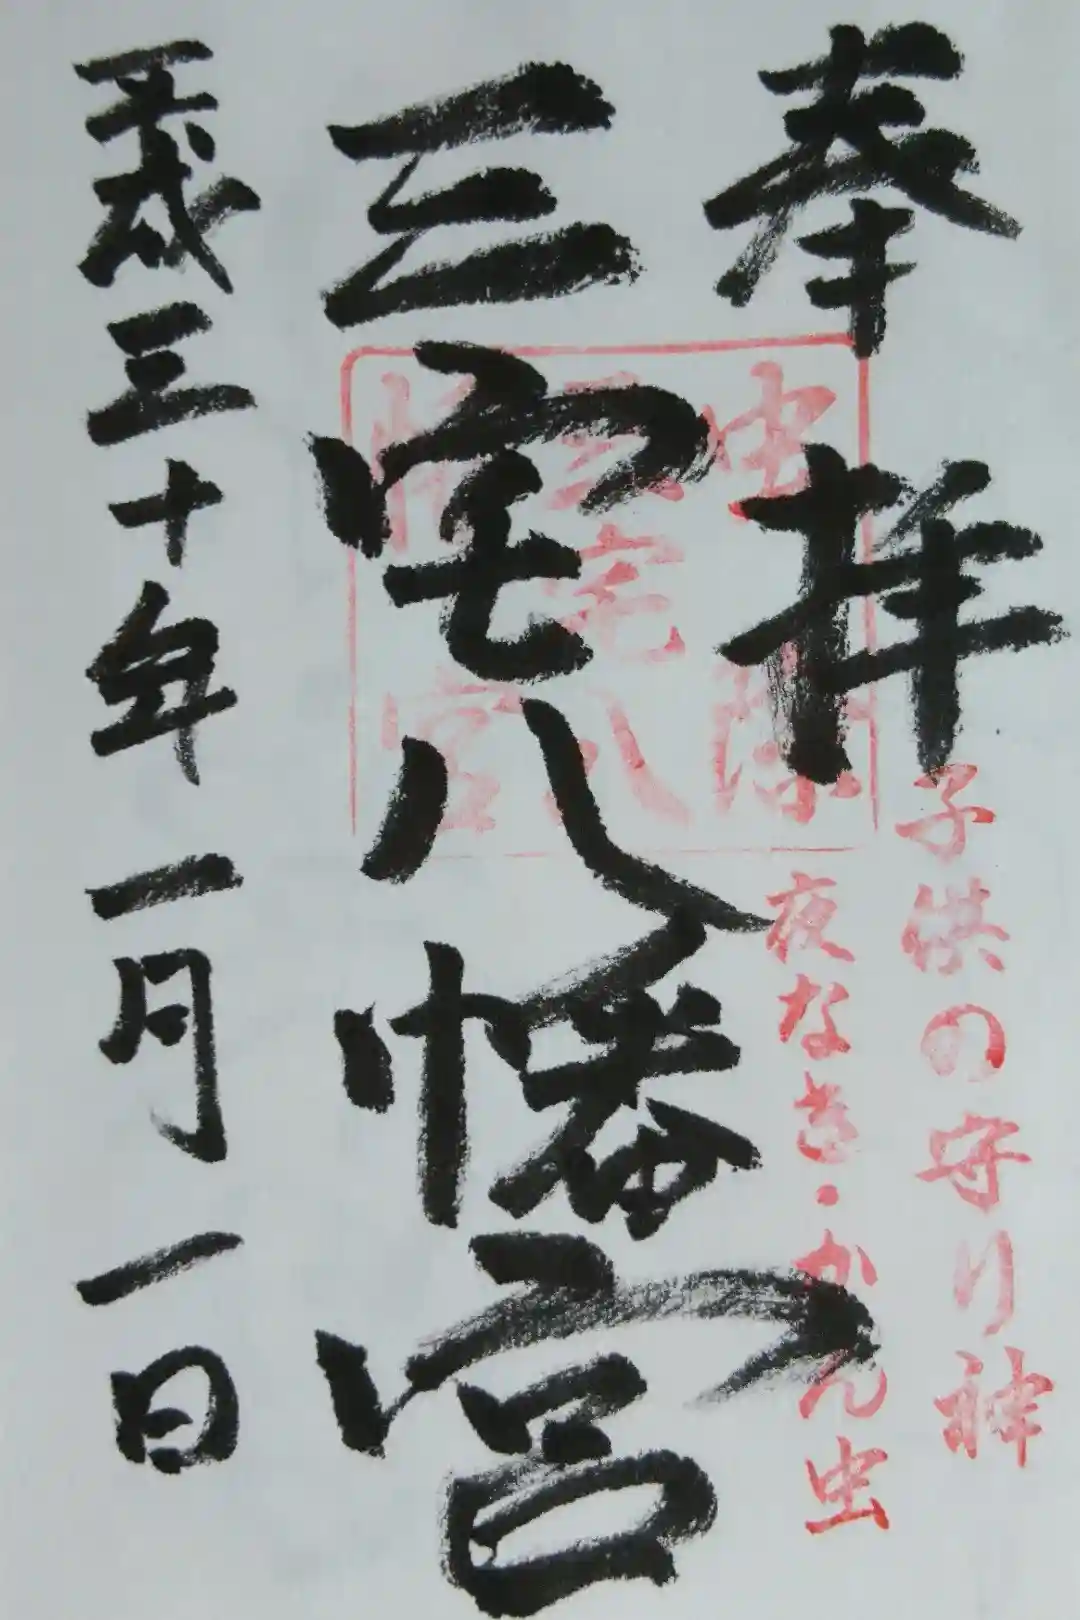 奉拝
子供の守り神
夜なき・かん虫
虫除
三宅八
幡宮
三宅八幡宮
平成三十年一月一日